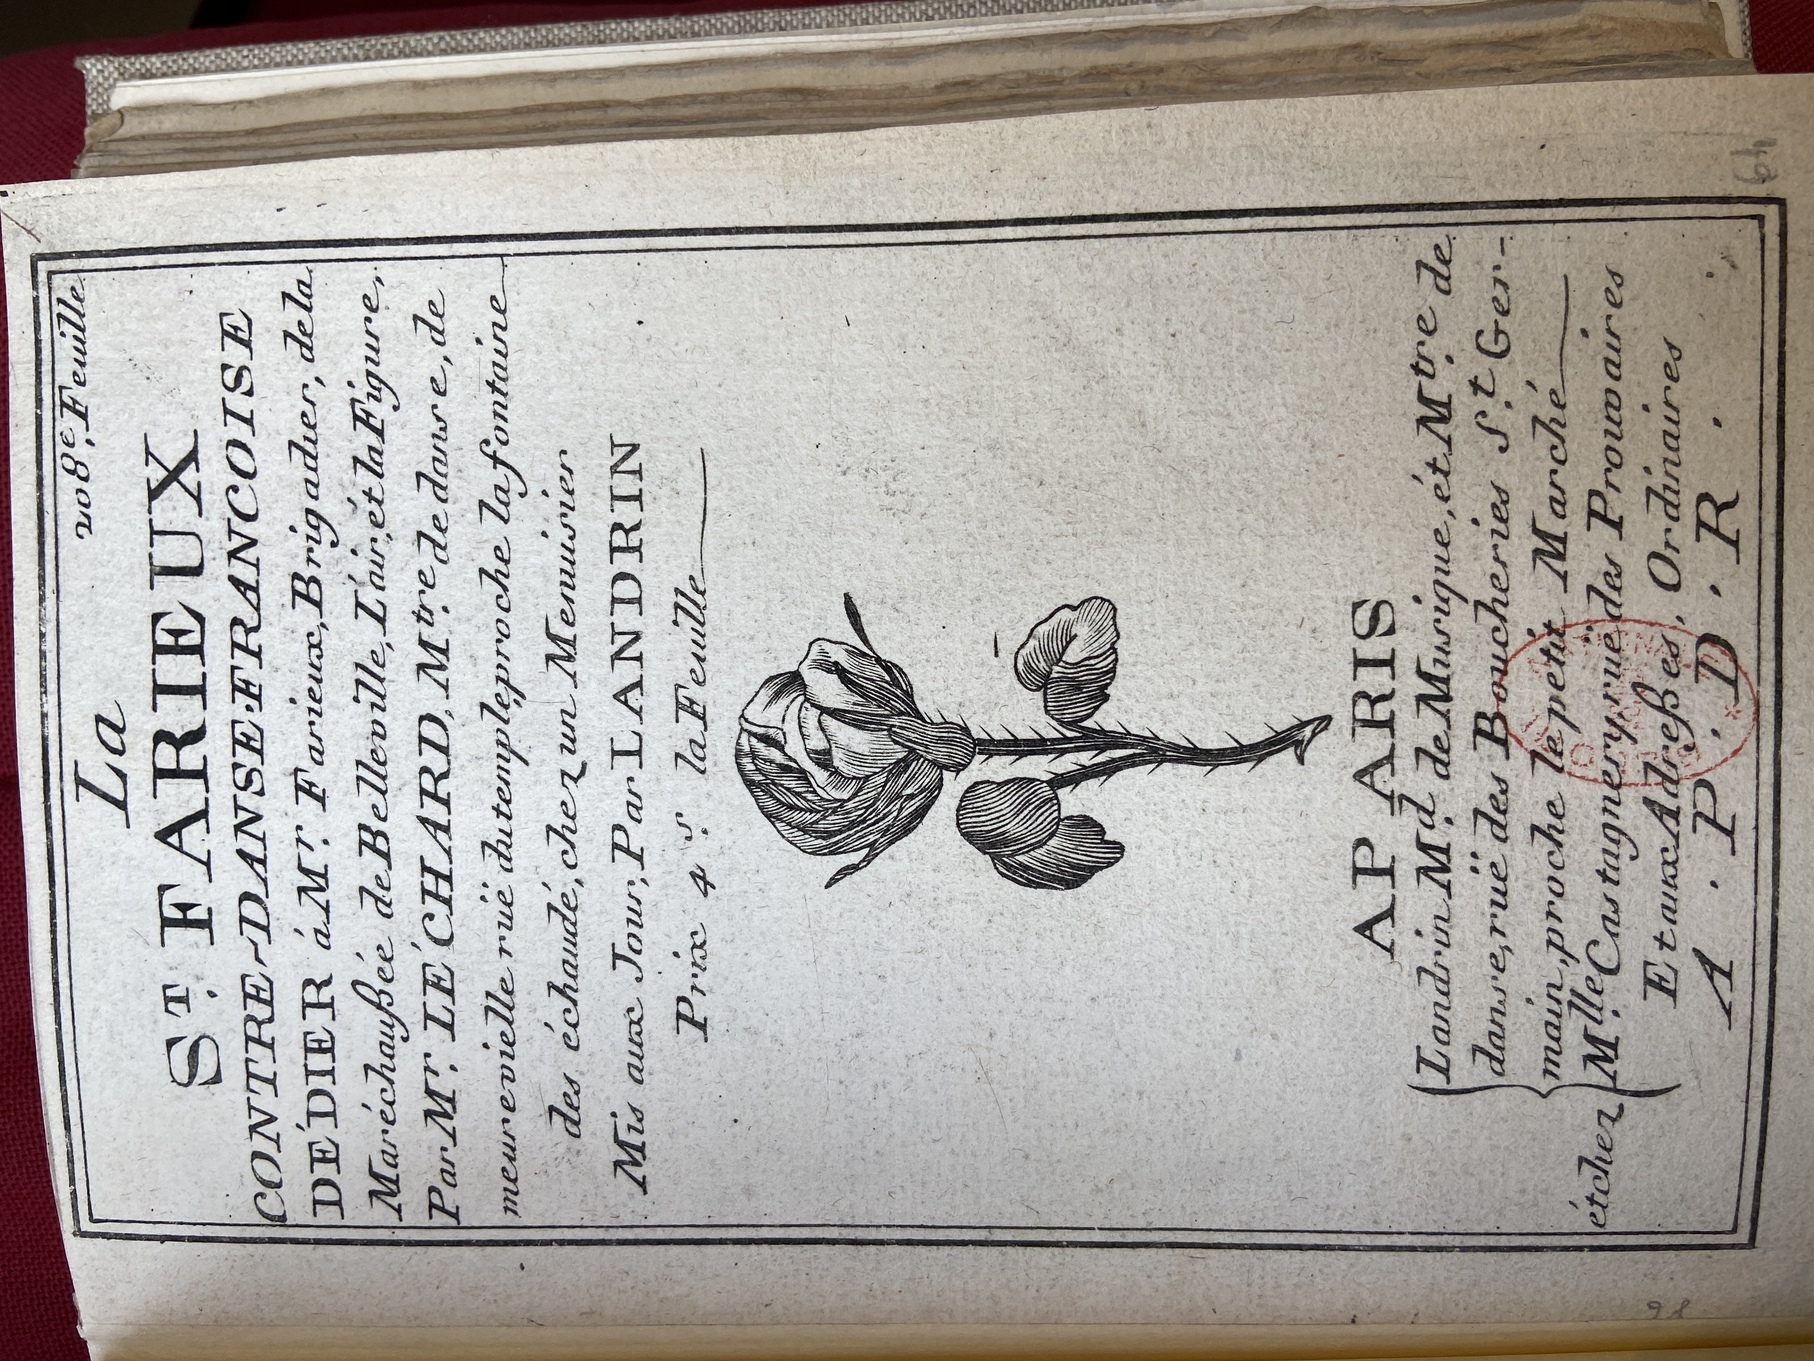 208.e Feuille
La
S.T FARIEUX
CONTRE-DANSE FRANCOISE
DÉDIER á M.r Farieux, Brigadier, de la
Maréchaußée de Belleville, L'air, ét la Figure,
Par M.r LÉCHARD, M.tre de danse, de
meure vielle ruë du temple, proche la fontaine
des échaudé, chez un Menuisier
Mis aux Jour, Par LANDRIN
Prix 4 s. la Feuille
AP ARIS
Landrin M.d de Musique, ét M.tre de
danse, ruë des Boucheries S.t Ger-
main, proche le petit Marché
ét chez M.lle Castagnery, ruë des Prouvaires
Et aux Adreßes, Ordinaires
A . P . D . R .
64
98